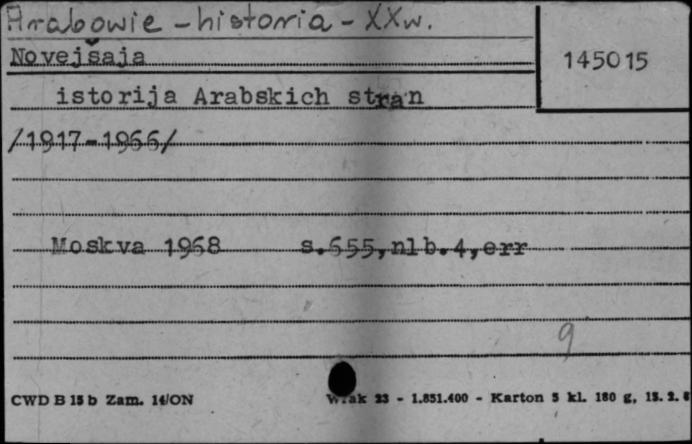 Arabowie - historia - XX w.
Novejšaja
145015
istorija Arabskich stran
/1917-1966/
Moskva 1968 s.655,nlb.4,err
9
CWD B 15 b Zam. 14/ON
23 - 1.851.400 - Karton 5 kl. 180 g,